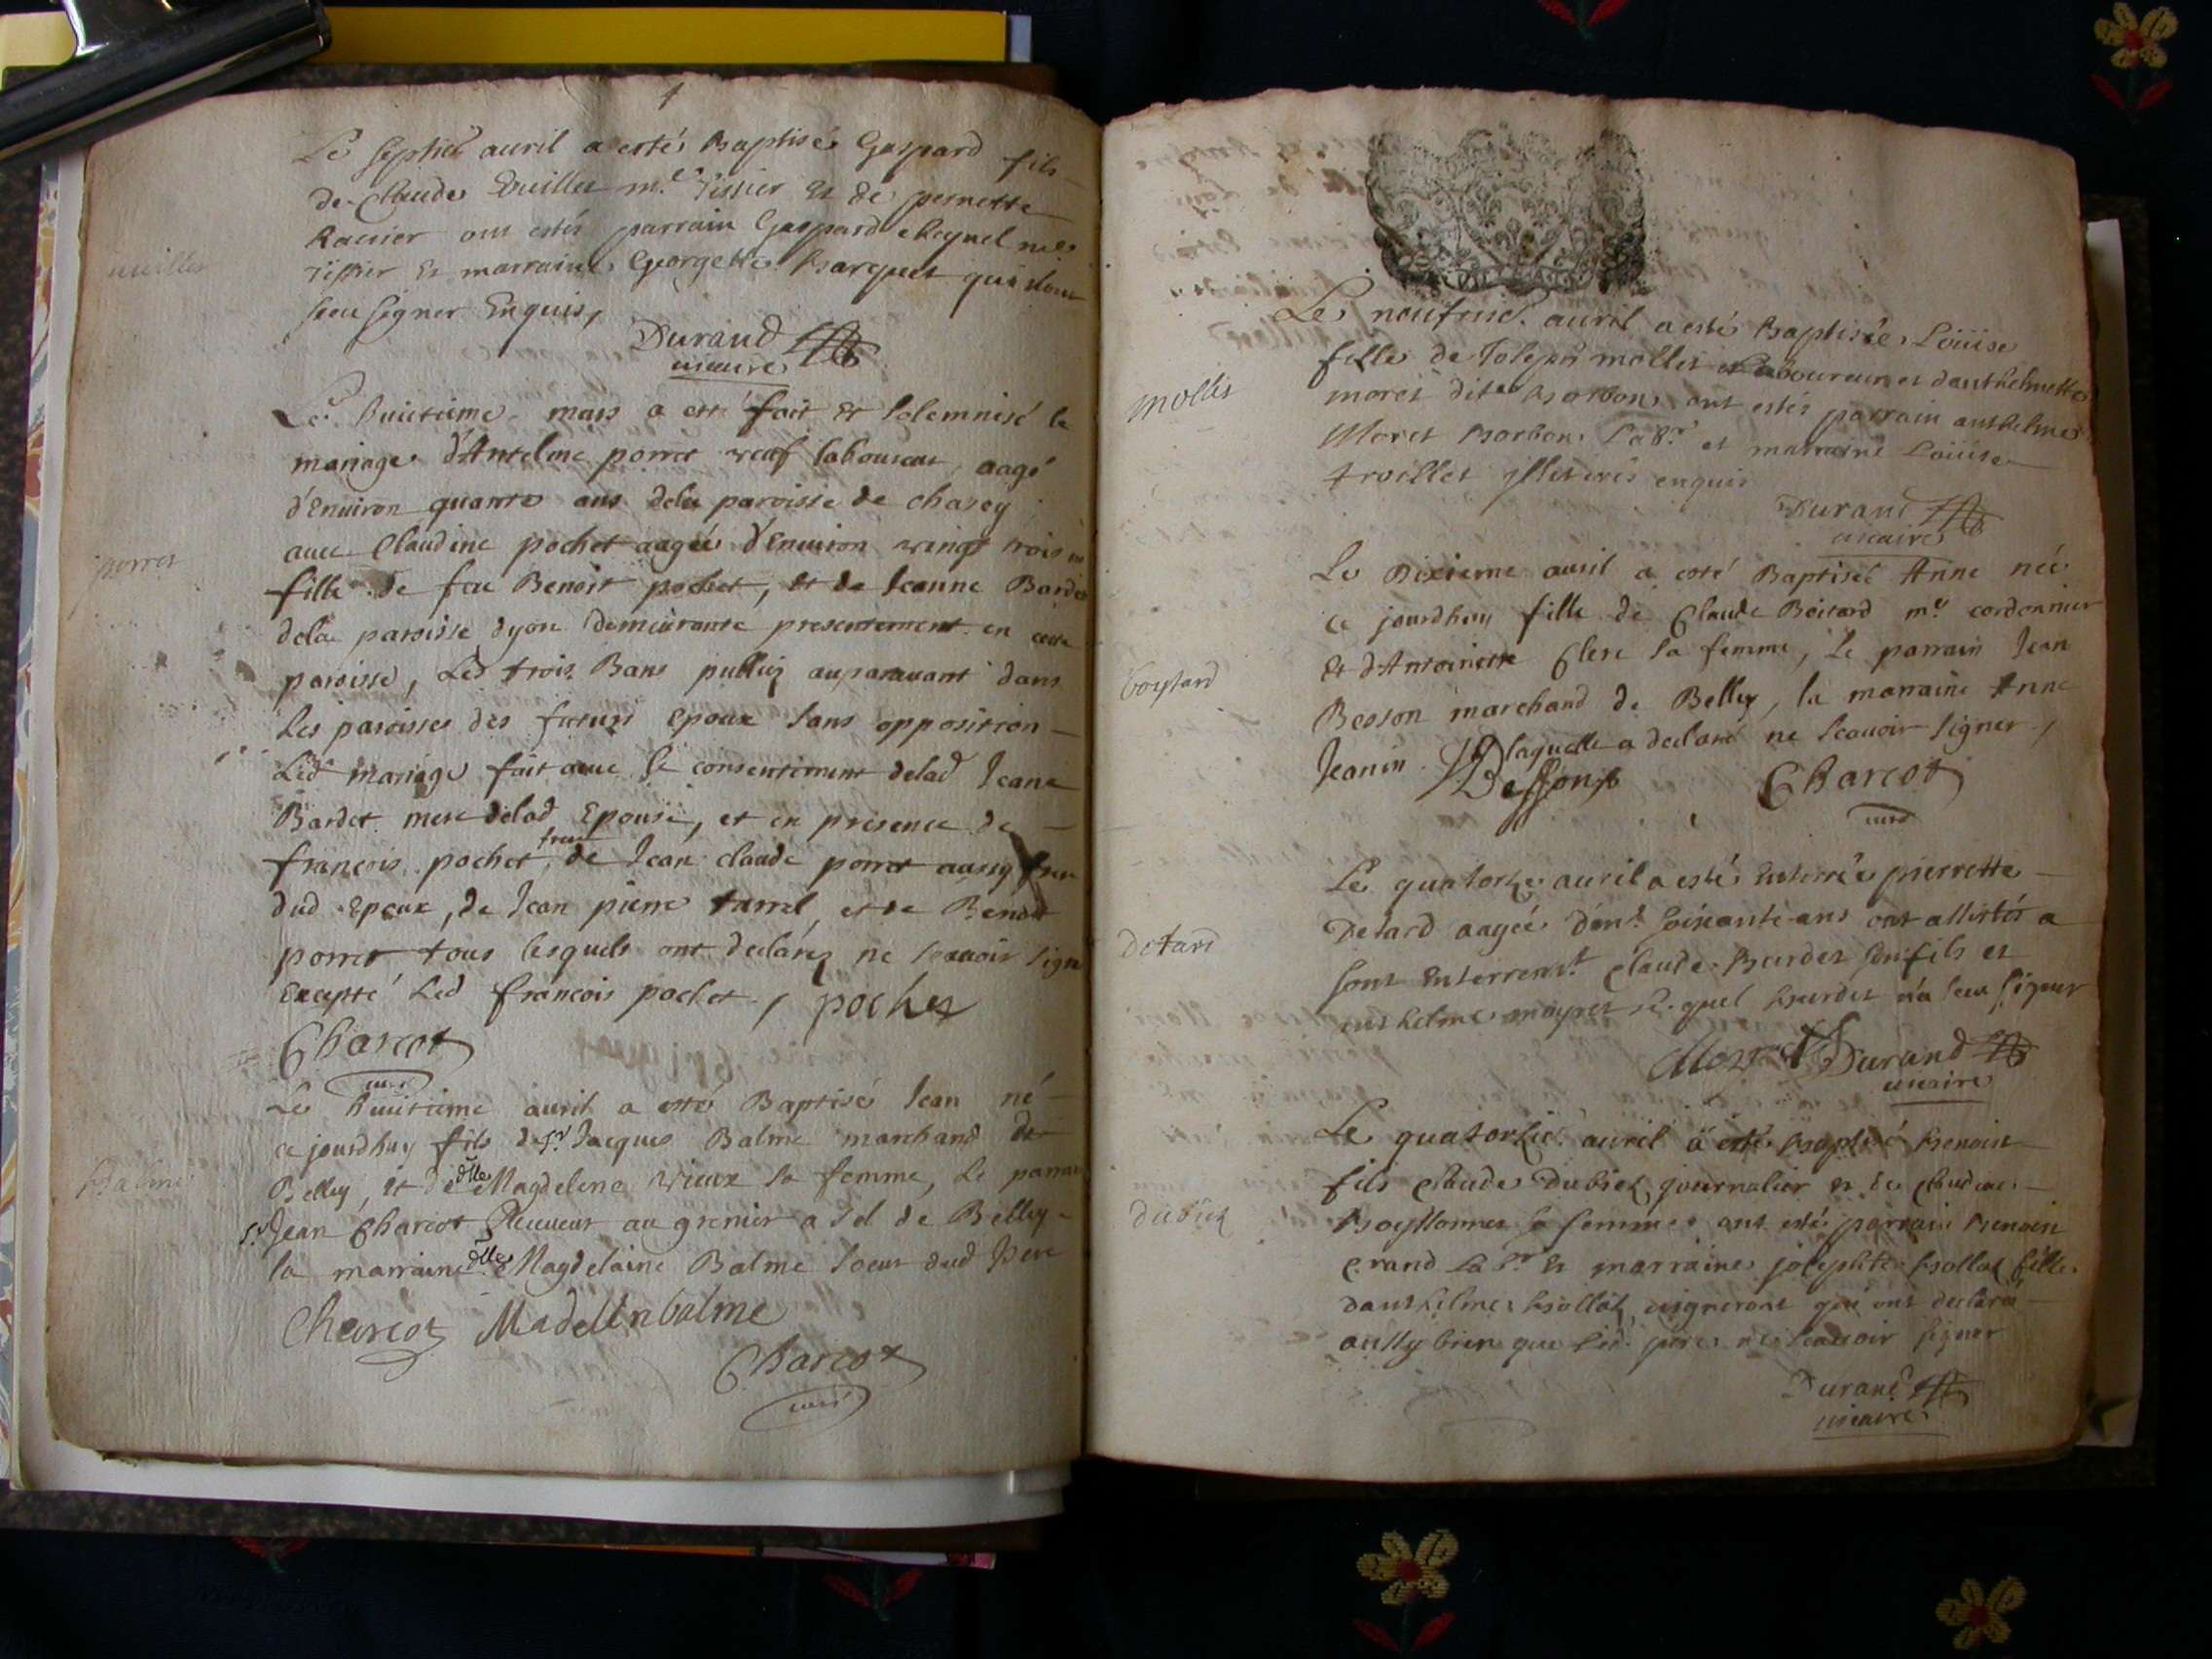 Le septie. auril a esté Baptisé Gaspard fils
de Claude Euillet m.e Tissier et de pernette
Racuier ont estés parrain Gaspard m.e
Tissier et marraine Georgette Barquet qui n'ont
sceu signer Enquis,
Durand
uicaire
Le huictieme mars a eté fait et solemnisé le
porret
mariage d'Antelme porret veuf laboureur, aagé
d'Enuiron quarante ans dela paroisse de chasey
auec Claudine pochet aagée d'Enuiron vingt trois
fille de feu Benoit pochet, et de Jeanne Bardet
dela paroisse dyon demeurante presentement en cette
paroisse, Led trois Bans publiez auparauant dans
Les paroisses des futurs epoux sans opposition
Led mariage fait auec le consentiment delad Jeane
Bardet mere delad Epouse, et en presence de
francois pochet, frere de Jean claude porret aussy frere
dud Epoux, de Jean pierre tarrel, et de Benoit
porret tous lesquels ont declarez ne scauoir signe
Excepté Led francois pochet, pochet
Charcot
curé
Le huitieme auril a eté Baptisé Jean né
ce jourdhuy fils de Sr Jacques Balme marchand de
Balme
Belley, et de dlle Magdelene vieux sa femme, Le parrain
Sr Jean Charcot Receueur au grenier a sel de Belley
la marraine dlle Magdelaine Balme soeur dud Pere
Charcot Madelenbalme
Charcot
curé
Le neufuie. auril a esté Baptisée Loüise
mollet
fille de Joseph mollet laboureur et danthelmette
moret dit Borbon ont estés parrain anthelme
Moret Borbon Lab.r et marraine Loüise
troillet illiterés enquis
Durand
uicaire
Le Dixieme auril a esté Baptiseé Anne née
ce jourdhuy fille de Claude Boitard m.e cordonnier
boytard
Et d'Antoinette Clerc sa femme, Le parrain Jean
Besson marchand de Belley, la marraine Anne
Jeanin laquelle a declaré ne scauoir signer,
Charcot
curé
Le quatorze auril a esté Enterrée pierrette
Detard
Detard aagée d'enu. soixante ans ont assistés a
sont Enterrem.t Claude Burdet son fils et
anthelme moyret le quel Burdet n'a sceu signer
Durand
uicaire
Le quatorzie. auril a esté baptisé Benoist
Dubiez
fils Claude Dubiez journalier et de Claudine
sa femme ont esté parrain Benoist
Lab.r et marraine josephte Bollat fille
danthelme Bollat uigneront qui ont declaré
aussy bien que Led. pere ne scauoir signer
Durand
uicaire